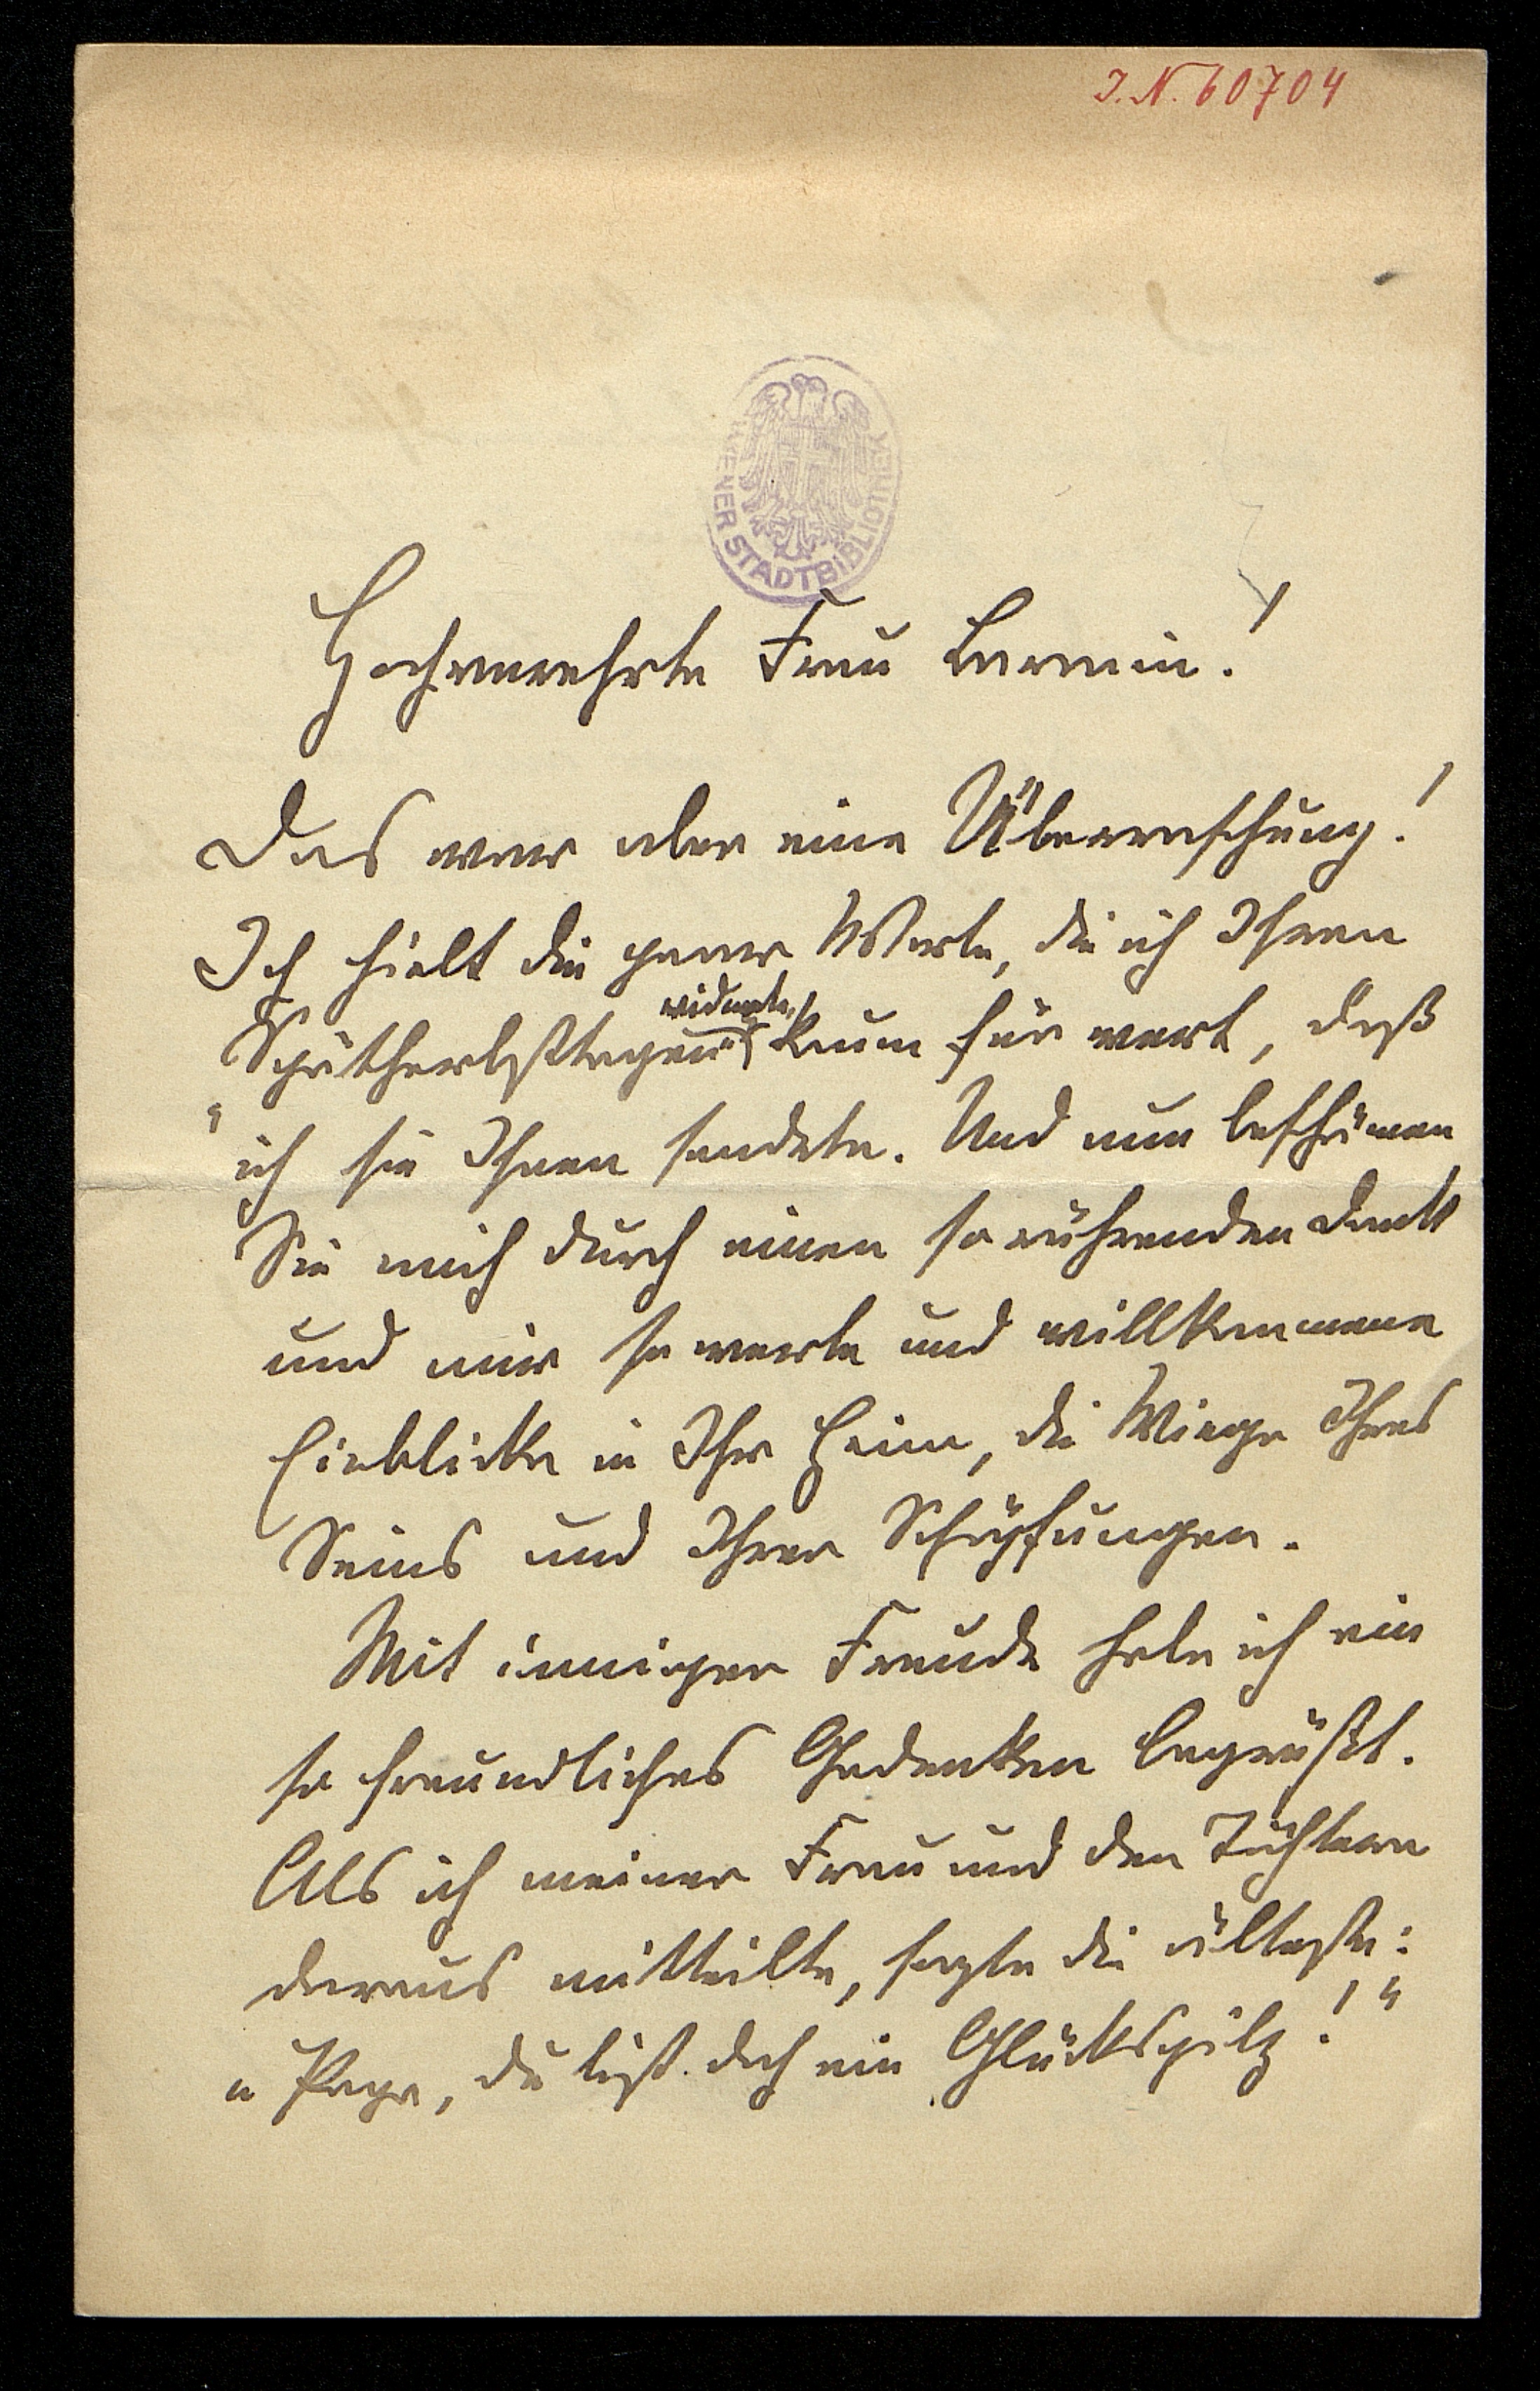 J. N. 60704
WIENER STADTBIBLIOTHEK
Hochverehrte Frau Baronin!
Das war aber eine Überraschung!
Ich hielt die paar Worte, die ich Ihren
widmete,
„Spätherbsttagen“ kaum für wert, daß
ich sie Ihnen sendete. Und nun beschämen
Sie mich durch einen so rührenden Dank
und mir so werte und willkommene
Einblicke in Ihr Heim, die Wiege Ihres
Seins und Ihrer Schöpfungen.
Mit inniger Freude habe ich ein
so freundliches Gedenken begrüßt.
Als ich meiner Frau und den Töchtern
daraus mitteilte, sagte die älteste:
„Papa, du bist doch ein Glückspilz!“